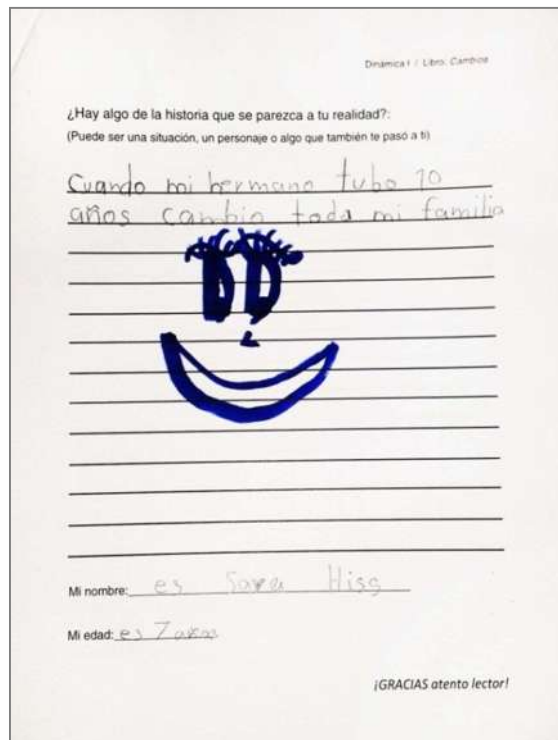 Dinámica I / Libro: Cambios
¿Hay algo de la historia que se parezca a tu realidad?:
(Puede ser una situación, un personaje o algo que también te pasó a ti)
Cuando mi hermano tubo 10
años cambio toda mi familia
Mi nombre: es Sara Hiss
Mi edad: es 7 años
¡GRACIAS atento lector!